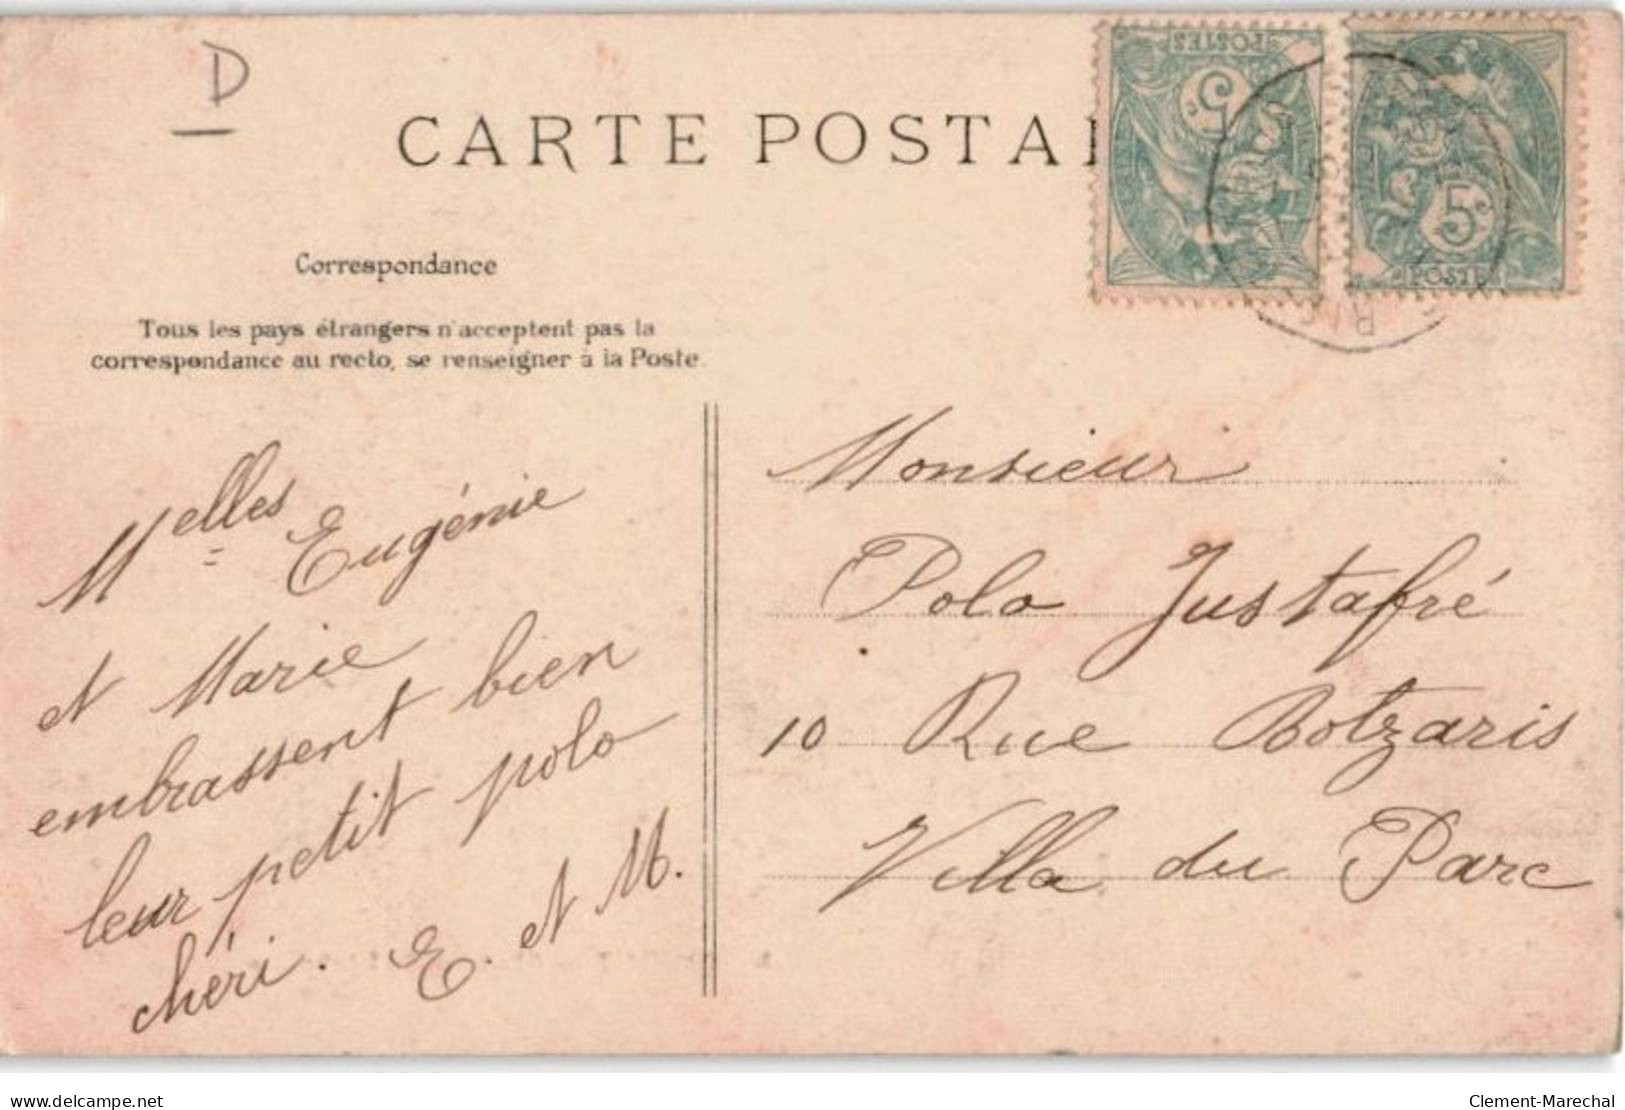 D
CARTE POSTA
POSTES
5c
5c
POSTES
Correspondance
Tous les pays étrangers n'acceptent pas la
correspondance au recto, se renseigner à la Poste.
Melles Eugénie
et Marie
embrassent bien
leur petit polo
chéri. E. et M.
Monsieur
Polo Justafré
10 Rue Botzaris
Villa du Parc
www.delcampe.net
Clement-Marechal